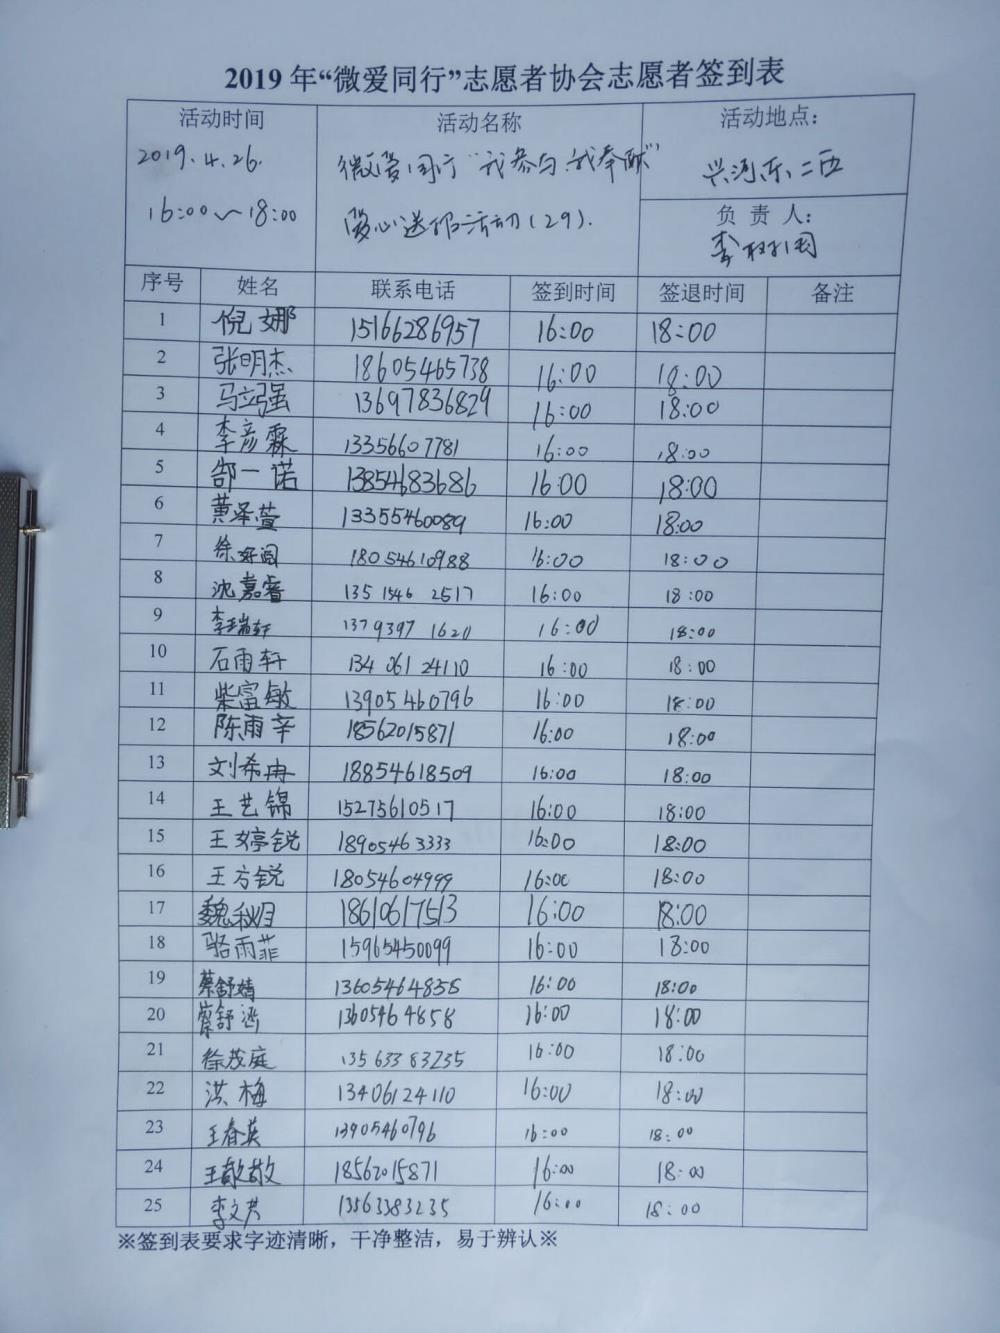 2019 年“微爱同行”志愿者协会志愿者签到表
活动时间 活动名称 活动地点：
2019.4.26. 微爱同行“我参与.我奉献” 兴河东、二西
16:00～18:00 爱心送报活动(29). 负 责 人：
李
序号 姓名 联系电话 签到时间 签退时间 备注
1 倪娜 15166286957 16:00 18:00
2 张明杰 18605465738 16:00 18:00
3 马立强 13697836829 16:00 18:00
4 李彦霖 13356607781 16:00 18:00
5 郜一诺 13854683686 16:00 18:00
6 黄泽萱 13355460089 16:00 18:00
7 徐好闾 18054610988 16:00 18:00
8 沈嘉睿 135 1546 2517 16:00 18:00
9 李瑞轩 1379397 1620 16:00 18:00
10 石雨轩 134 061 24110 16:00 18:00
11 柴富敏 13905460796 16:00 18:00
12 陈雨辛 18562015871 16:00 18:00
13 刘希冉 18854618509 16:00 18:00
14 王艺锦 15275610517 16:00 18:00
15 王婷锐 18905463333 16:00 18:00
16 王方锐 18054604999 16:00 18:00
17 魏秋月 18610617513 16:00 18:00
18 骆雨菲 15965450099 16:00 18:00
19 蔡舒婧 13605464858 16:00 18:00
20 蔡舒涵 13605464858 16:00 18:00
21 徐茂庭 13563383235 16:00 18:00
22 洪梅 13406124110 16:00 18:00
23 王春英 13905460796 16:00 18:00
24 王敬敬 18562015871 16:00 18:00
25 李文芹 13563383235 16:00 18:00
※签到表要求字迹清晰，干净整洁，易于辨认※